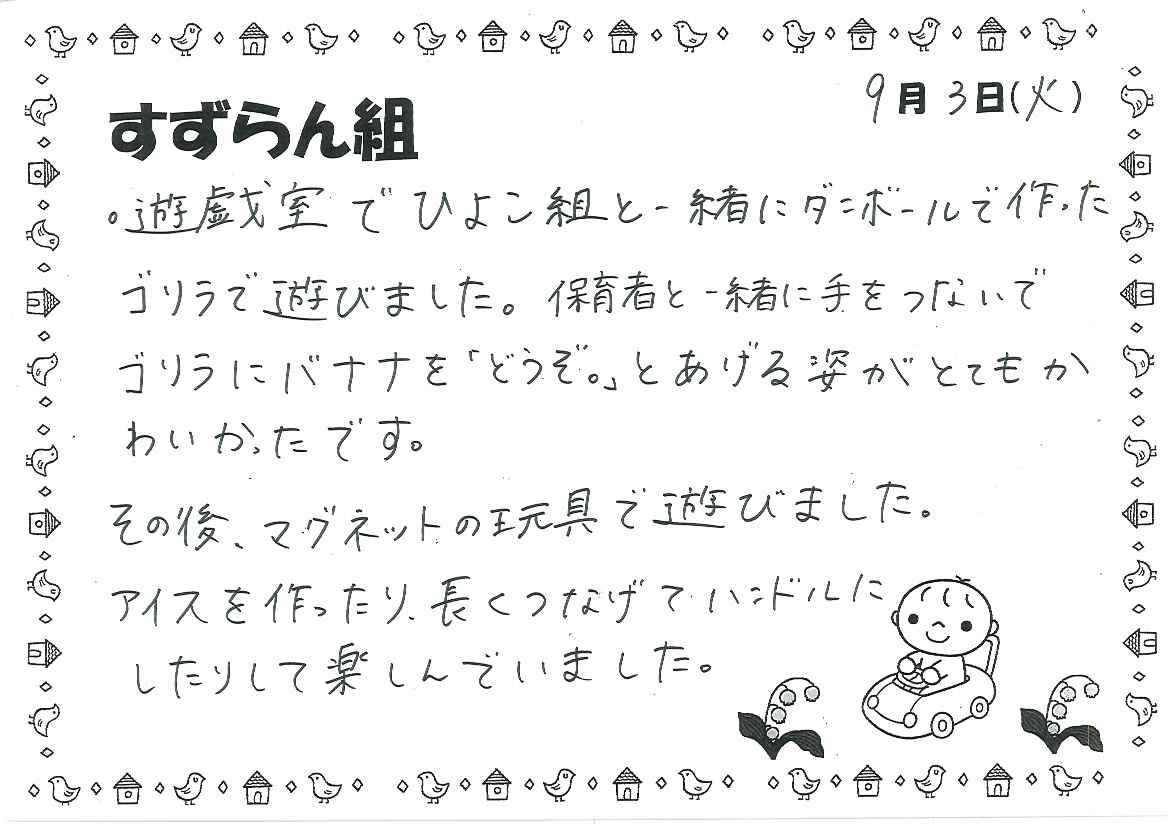 9月3日(火)
すずらん組
。遊戯室でひよこ組と一緒にダンボールで作った
ゴリラで遊びました。保育者と一緒に手をつないで
ゴリラにバナナを「どうぞ。」とあげる姿がとてもか
わいかったです。
その後、マグネットの玩具で遊びました。
アイスを作ったり、長くつなげてハンドルに
したりして楽しんでいました。